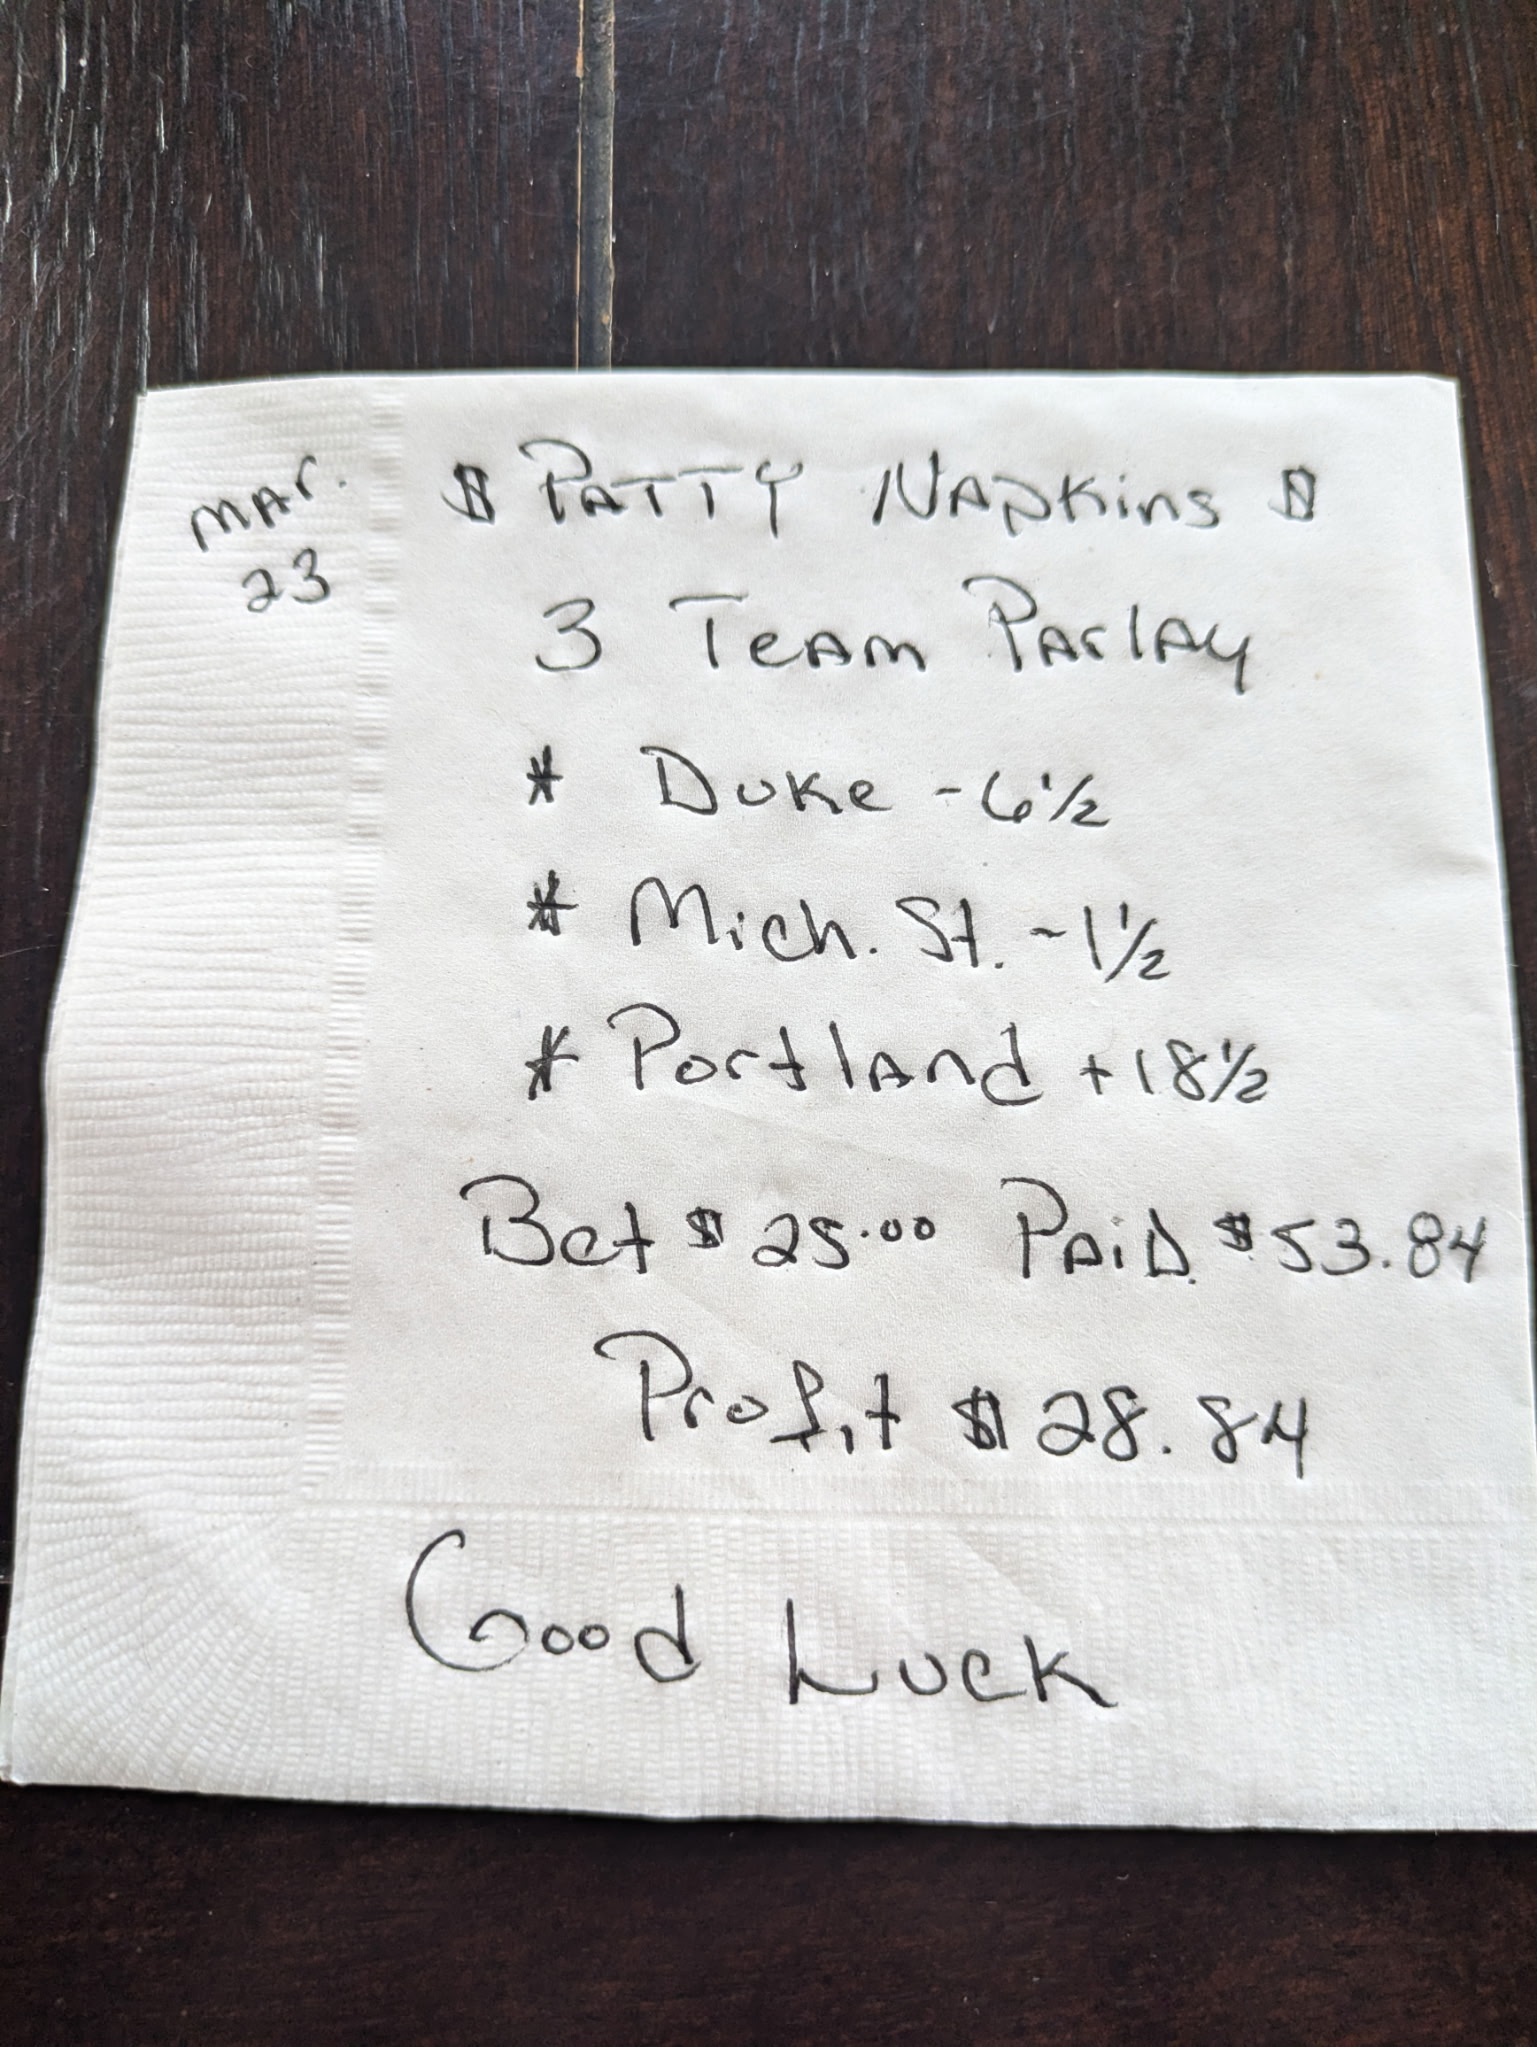 Mar.
23
$ Patty Napkins $
3 Team Parlay
* Duke -6 1/2
* Mich. St. -1 1/2
* Portland +18 1/2
Bet $25.00 Paid $53.84
Profit $28.84
Good Luck